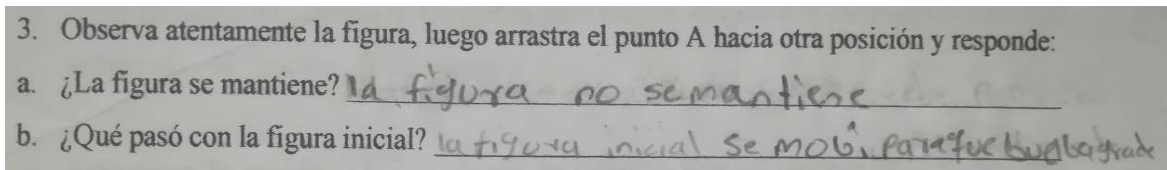 3. Observa atentamente la figura, luego arrastra el punto A hacia otra posición y responde:
a. ¿La figura se mantiene? la figura no se mantiene
b. ¿Qué pasó con la figura inicial? la figura inicial se mobi para que buelba grade